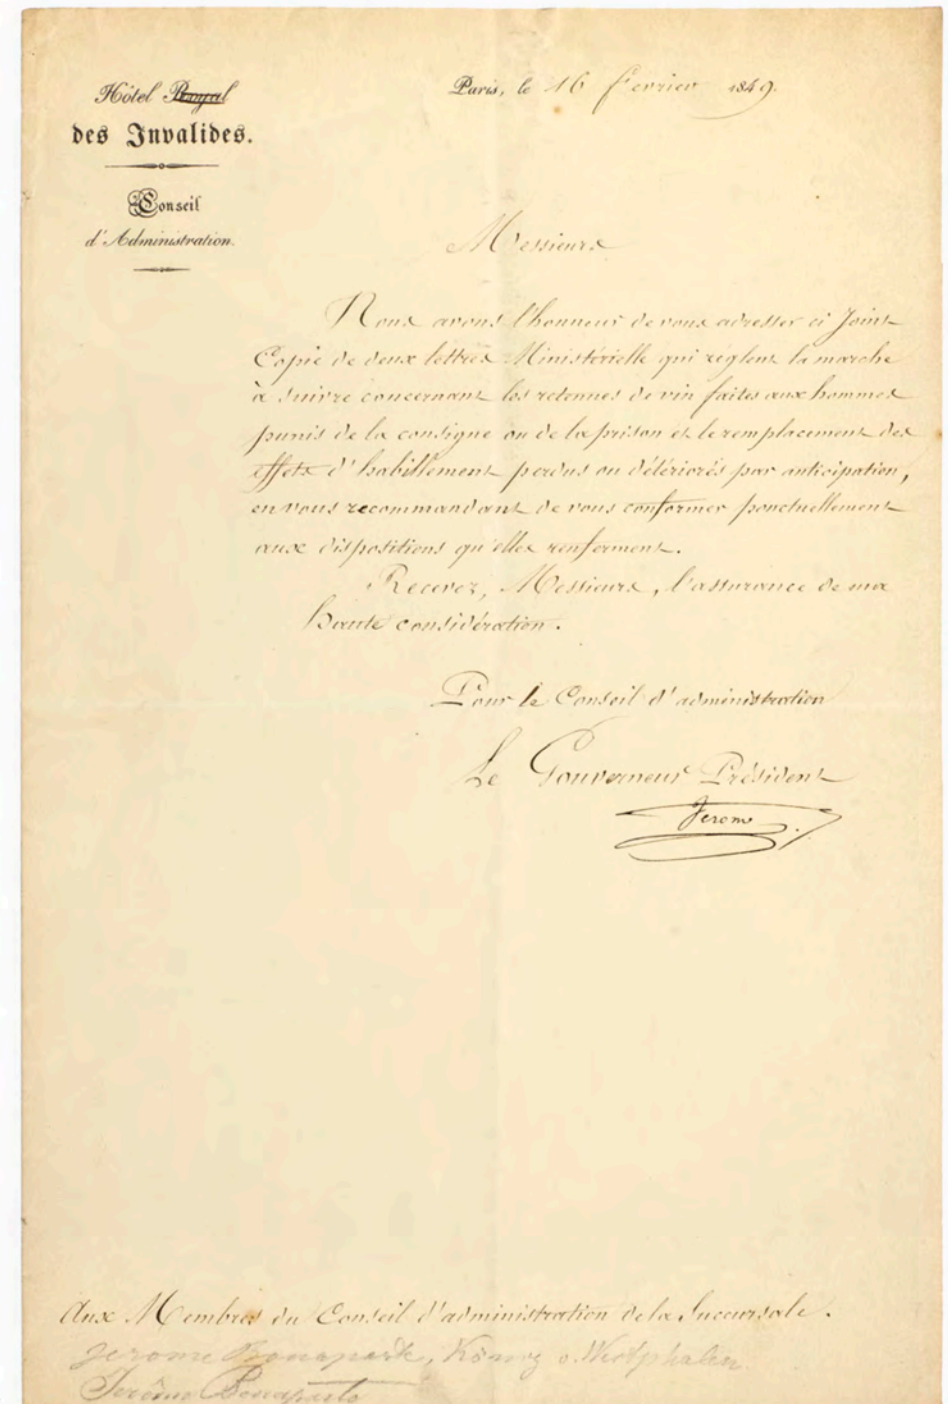 Hôtel Royal
des Invalides.
Conseil
d'Administration.
Paris, le 16 fevrier 1849.
Messieurs
Nous avons l'honneur de vous adresser ci Joint
Copie de deux lettres Ministérielle qui règlent la marche
à suivre concernant les retenues de vin faites aux hommes
punis de la consigne ou de la prison et le remplacement des
effets d'habillement perdus ou détériorés par anticipation,
en vous recommandant de vous conformer ponctuellement
aux dispositions qu'elles renferment.
Recevez, Messieurs, l'assurance de ma
haute considération.
Pour le Conseil d'administration
Le Gouverneur Président
Jerome
Aux Membres du Conseil d'administration de la Succursale.
Jerome Bonaparte, König v. Westphalen
Jerôme Bonaparte